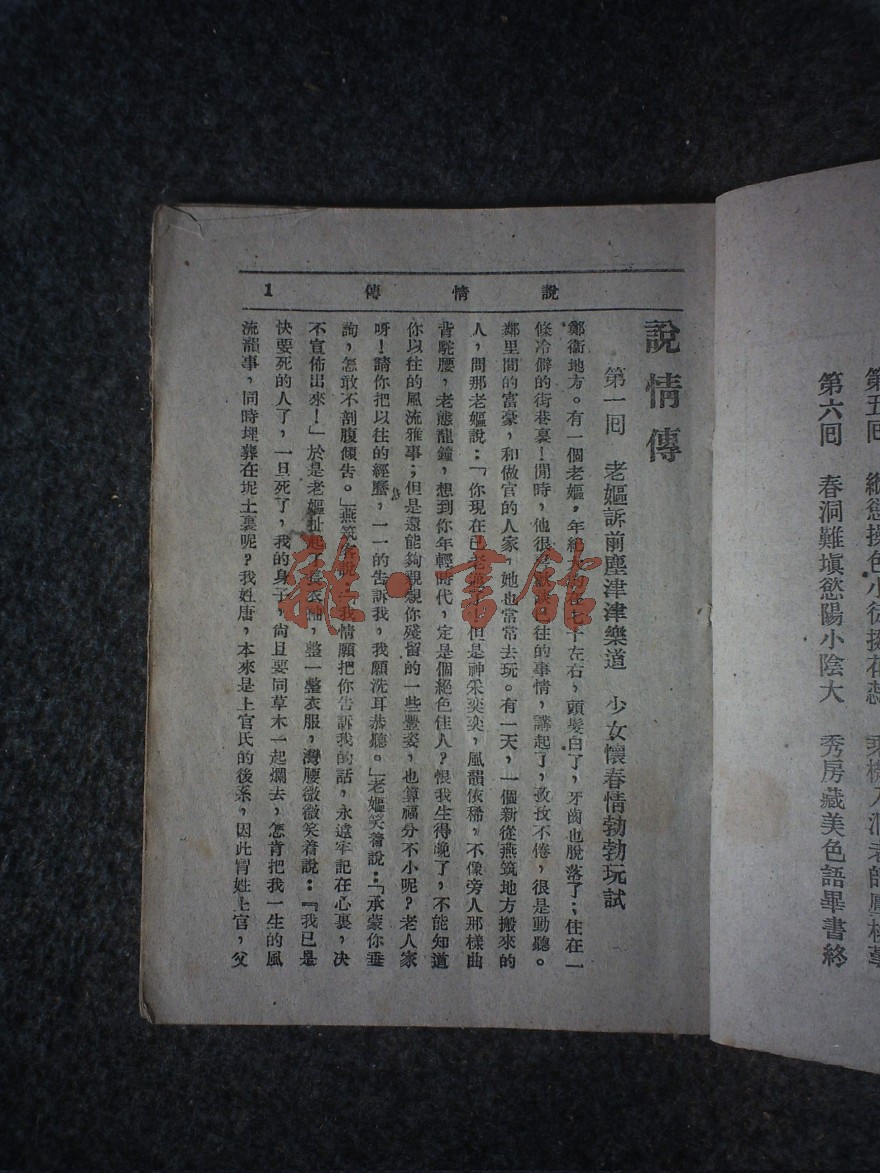 第五回
第六回　春洞難塡慾陽小陰大　秀房藏美色語畢書終
說情傳　1
說情傳
第一回　老嫗訴前塵津津樂道　少女懷春情勃勃玩試
鄭衞地方。有一個老嫗，年紀大約在七十左右，頭髮白了，牙齒也脫落了；住在一
條冷僻的街巷裏！閒時，他很喜歡講已往的事情，講起了，孜孜不倦，很是動聽。
鄰里間的富豪，和做官的人家，她也常常去玩。有一天，一個新從燕筑地方搬來的
人，問那老嫗說：「你現在已老邁了，但是神采奕奕，風韻依稀，不像旁人那樣曲
背駝腰，老態龍鐘，想到你年輕時代，定是個絕色佳人？恨我生得晚了，不能知道
你以往的風流雅事；但是還能夠親親你殘留的一些豐姿，也算福分不小呢？老人家
呀！請你把以往的經歷，一一的告訴我，我願洗耳恭聽。」老嫗笑着說：「承蒙你垂
詢，怎敢不剖腹傾告。」燕筑客說：「我情願把你告訴我的話，永遠牢記在心裏，决
不宣佈出來！」於是老嫗扯起了長衣袖，整一整衣服，灣腰微微笑着說：『我已是
快要死的人了，一旦死了，我的身子，尙且要同草木一起爛去，怎肯把我一生的風
流韻事，同時埋葬在坭土裏呢？我姓唐，本來是上官氏的後系，因此冐姓上官，父
雜·書館